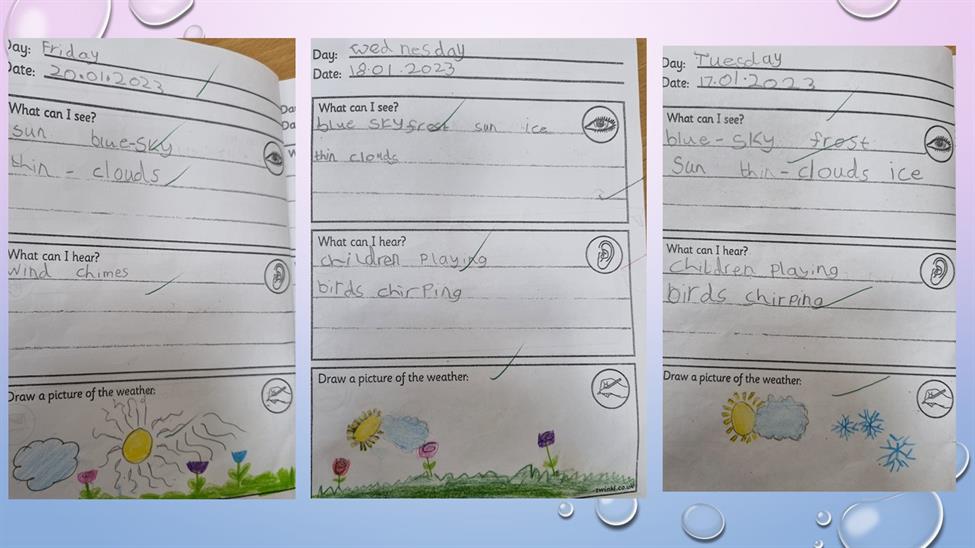 Day: Friday
Date: 20.01.2023
What can I see?
sun blue-sky
thin - clouds
What can I hear?
wind chimes
Draw a picture of the weather:
Day: Wednesday
Date: 18.01.2023
What can I see?
blue sky frost sun ice
thin clouds
What can I hear?
children playing
birds chirping
Draw a picture of the weather:
twinkl.co.uk
Day: Tuesday
Date: 17.01.2023
What can I see?
blue-sky frost
Sun thin-clouds ice
What can I hear?
children playing
birds chirping
Draw a picture of the weather: